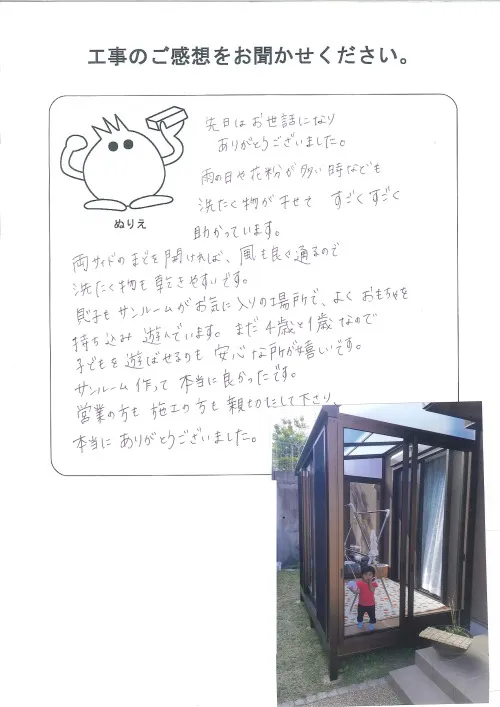 工事のご感想をお聞かせください。
ぬりえ
先日はお世話になり
ありがとうございました。
雨の日や花粉が多い時なども
洗たく物が干せて すごくすごく
助かっています。
両サイドのまどを開ければ、風も良く通るので
洗たく物も乾きやすいです。
息子もサンルームがお気に入りの場所で、よく おもちゃを
持ち込み 遊んでいます。まだ 4歳と1歳なので
子どもを 遊ばせるのも 安心な所が嬉しいです。
サンルーム 作って 本当に良かったです。
営業の方も 施工の方も 親切にして下さり、
本当に ありがとうございました。